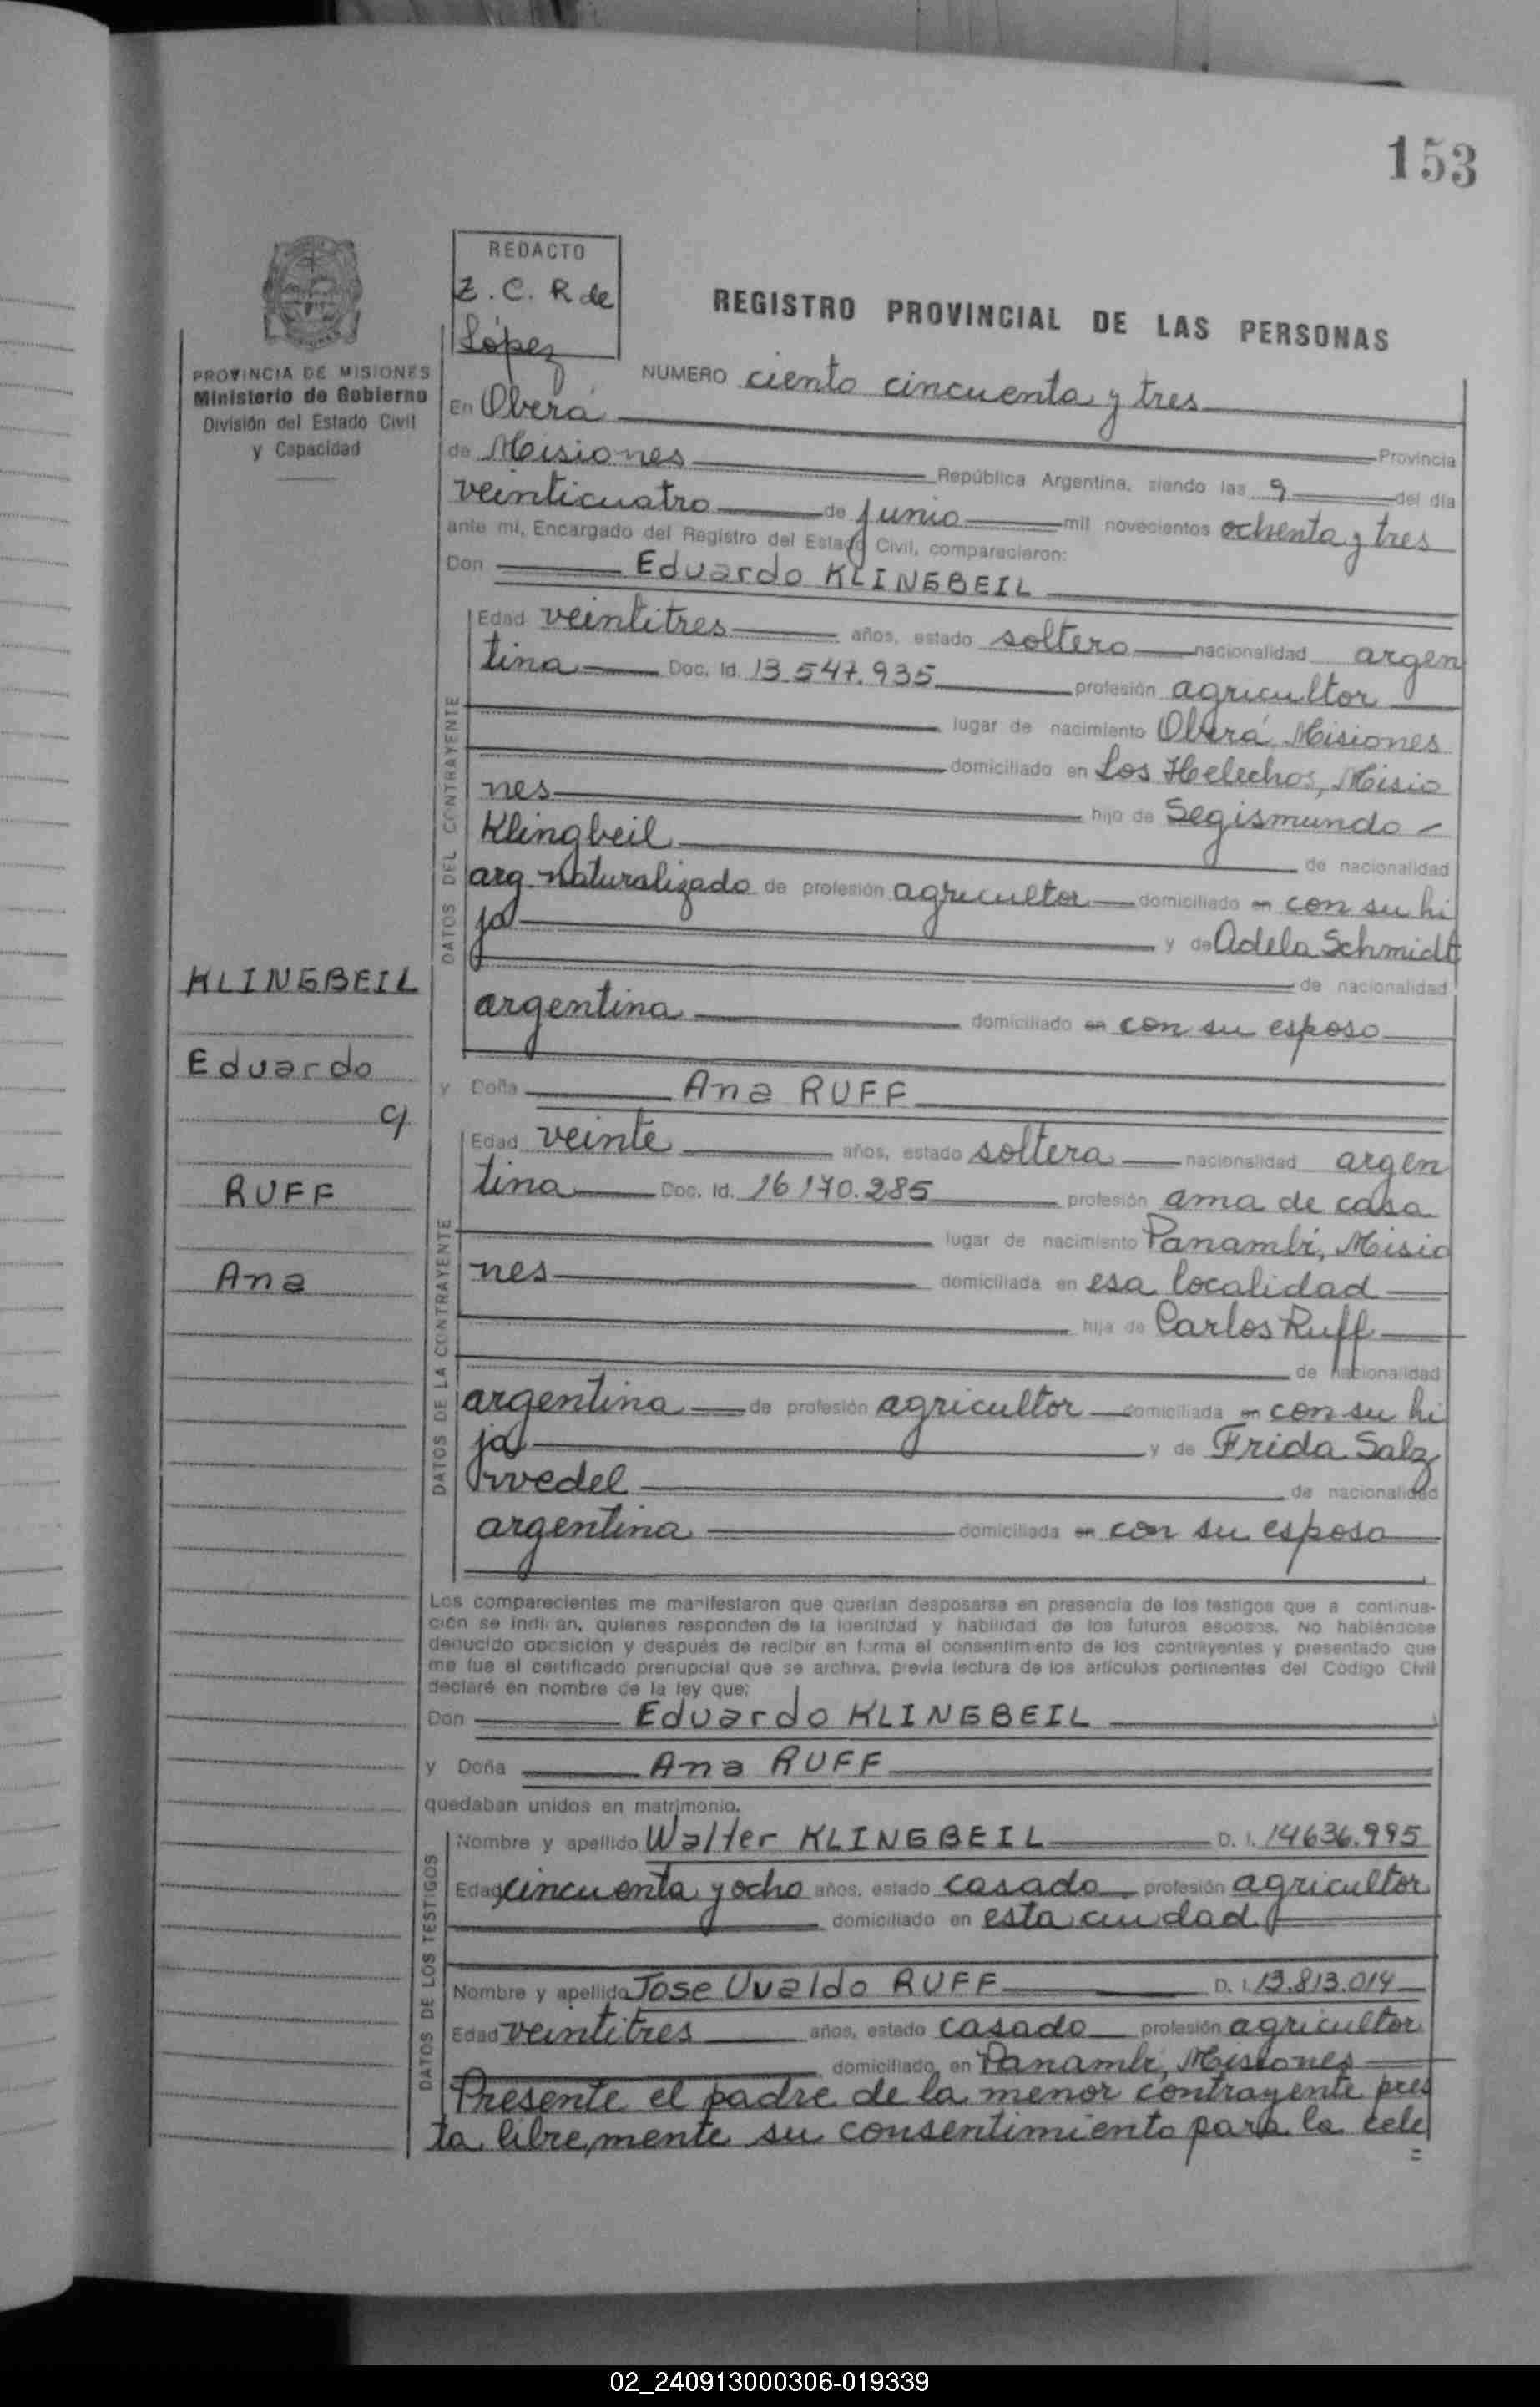 153
REDACTO
Z. C. R de
López
REGISTRO PROVINCIAL DE LAS PERSONAS
PROVINCIA DE MISIONES
Ministerio de Gobierno
División del Estado Civil
y Capacidad
NUMERO ciento cincuenta y tres
En Oberá
Provincia
de Misiones República Argentina, siendo las 9 del día
veinticuatro de junio mil novecientos ochenta y tres
ante mi, Encargado del Registro del Estado Civil, comparecieron:
Don Eduardo KLINGBEIL
DATOS DEL CONTRAYENTE
Edad veintitres años, estado soltero nacionalidad argen
tina Doc. Id. 13.547.935 profesión agricultor
lugar de nacimiento Oberá, Misiones
domiciliado en Los Helechos, Misio
nes hijo de Segismundo
Klingbeil de nacionalidad
arg. naturalizado de profesión agricultor domiciliado en con su hi
jo y de Adela Schmidt
de nacionalidad
argentina domiciliado en con su esposo
KLINGBEIL
Eduardo
c/
RUFF
Ana
y Doña Ana RUFF
DATOS DE LA CONTRAYENTE
Edad veinte años, estado soltera nacionalidad argen
tina Doc. Id. 16.170.285 profesión ama de casa
lugar de nacimiento Panambí, Misio
nes domiciliada en esa localidad
hija de Carlos Ruff
de nacionalidad
argentina de profesión agricultor domiciliada en con su hi
ja y de Frida Salz
wedel de nacionalidad
argentina domiciliada en con su esposo
Los comparecientes me manifestaron que querían desposarse en presencia de los testigos que a continua-
ción se indican, quienes responden de la identidad y habilidad de los futuros esposos. No habiéndose
deducido oposición y después de recibir en forma el consentimiento de los contrayentes y presentado que
me fue el certificado prenupcial que se archiva, previa lectura de los artículos pertinentes del Código Civil
declaré en nombre de la ley que:
Don Eduardo KLINGBEIL
y Doña Ana RUFF
quedaban unidos en matrimonio.
DATOS DE LOS TESTIGOS
Nombre y apellido Walter KLINGBEIL D. I. 14636.995
Edad cincuenta y ocho años, estado casado profesión agricultor
domiciliado en esta ciudad
Nombre y apellido Jose Uvaldo RUFF D. I. 13.813.014
Edad veintitres años, estado casado profesión agricultor
domiciliado en Panambí, Misiones
Presente el padre de la menor contrayente pres
ta libremente su consentimiento para la cele
=
02_240913000306-019339